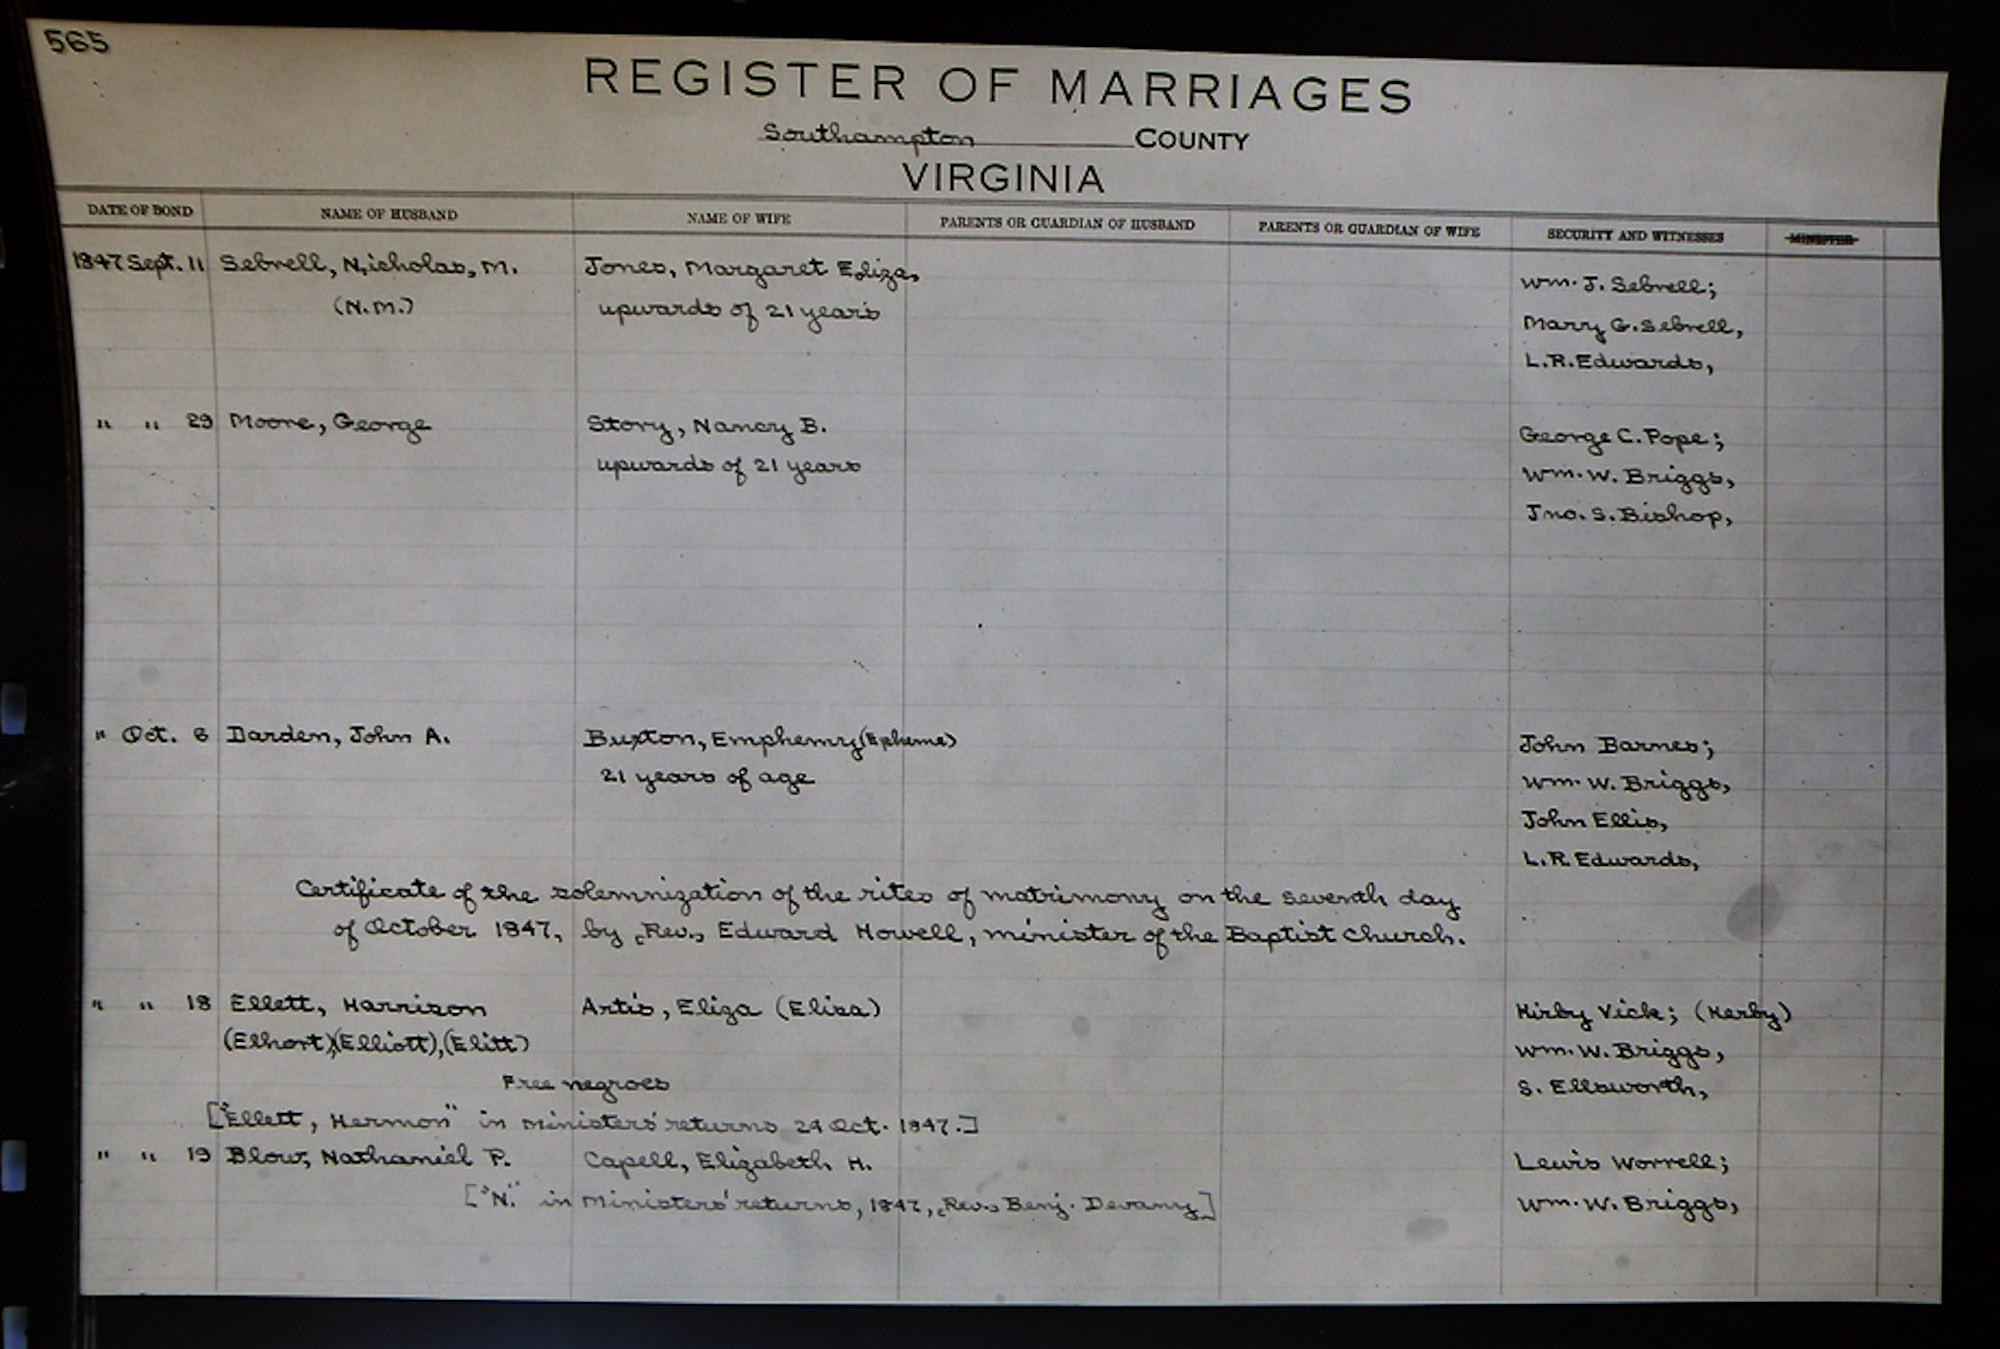 565
REGISTER OF MARRIAGES
Southampton COUNTY
VIRGINIA
DATE OF BOND NAME OF HUSBAND NAME OF WIFE PARENTS OR GUARDIAN OF HUSBAND PARENTS OR GUARDIAN OF WIFE SECURITY AND WITNESSES MINISTER
1847 Sept. 11 Sebrell, Nicholas, M. Jones, Margaret Eliza, Wm. J. Sebrell;
(N.M.) upwards of 21 years Mary G. Sebrell,
L.R. Edwards,
" " 29 Moore, George Story, Nancy B. George C. Pope;
upwards of 21 years Wm. W. Briggs,
Jno. S. Bishop,
" Oct. 6 Darden, John A. Buxton, Emphemy (Epheme) John Barnes;
21 years of age Wm. W. Briggs,
John Ellis,
L.R. Edwards,
Certificate of the solemnization of the rites of matrimony on the seventh day
of October 1847, by (Rev.) Edward Howell, minister of the Baptist Church.
" " 18 Ellett, Harrison Artis, Eliza (Elisa) Kirby Vick; (Kerby)
(Elhort)(Elliott),(Elitt) Wm. W. Briggs,
Free negroes S. Ellsworth,
["Ellett, Hermon" in ministers' returns 24 Oct. 1847.]
" " 19 Blow, Nathaniel P. Capell, Elizabeth H. Lewis Worrell;
["N." in Ministers' returns, 1847, (Rev.) Benj. Devany] Wm. W. Briggs,